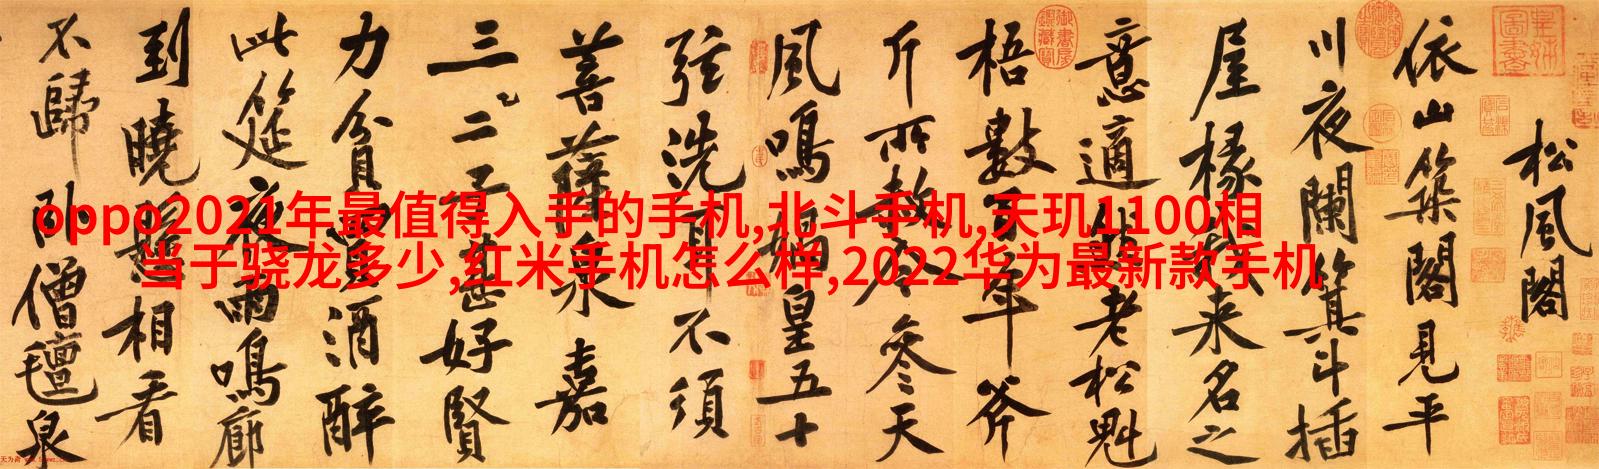 oppo2021年最值得入手的手机,北斗手机,天玑1100相
当于骁龙多少,红米手机怎么样,2022华为最新款手机
松風閣
依山築閣見平
川夜闌箕斗插
屋椽我来名之
意適然老松魁
梧數百年斧
斤所赦今參天
風鳴媧皇五十
弦洗耳不須
菩薩泉嘉
三二子甚好賢
力貧買酒醉
此筵夜雨鳴廊
到曉懸相看
不歸卧僧氈泉